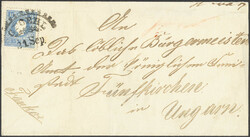 An
Das löbliche Bürgermeister
Amt der Königlichen Frei
Stadt
Fünfkirchen
in
Ungarn
21 Sep.